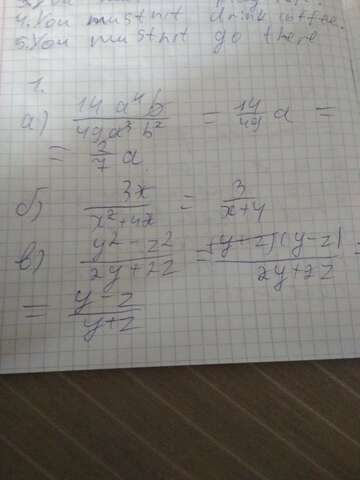 4. You mustn't drink coffee.
5. You mustn't go there
1.
а) 14 a⁴ b / 49 a³ b² = 14/49 a =
= 2/7 a
б) 3x / x² + 4x = 3 / x + 4
в) y² - z² / 2y + 2z = (y + z)(y - z) / 2y + 2z =
= y - z / y + z